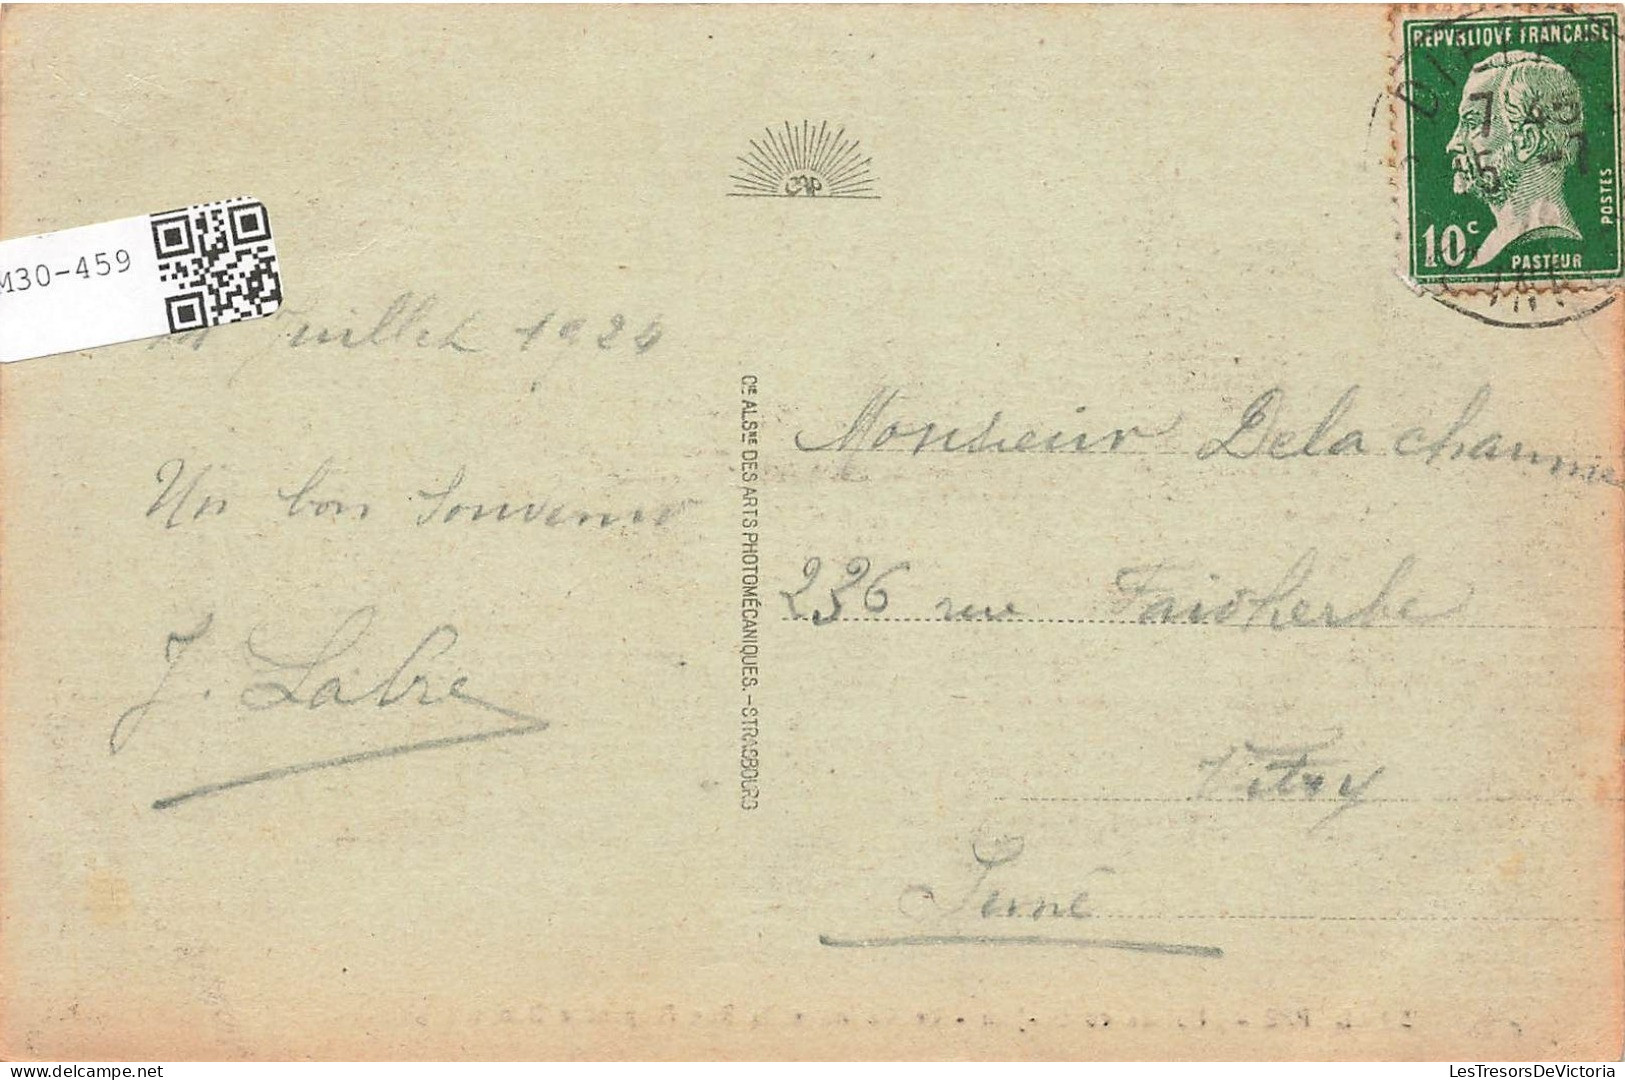 REPVBLIQVE FRANÇAISE
DIEPPE
7 45
15 -7
POSTES
10c
PASTEUR
CAP
M30-459
14 Juillet 1924
Un bon Souvenir
J. Labre
CIE ALSNE DES ARTS PHOTOMÉCANIQUES. – STRASBOURG
Monsieur Delachaume
236 rue Faidherbe
Vitry
Seine
LesTresorsDeVictoria
LesTresorsDeVictoria.com